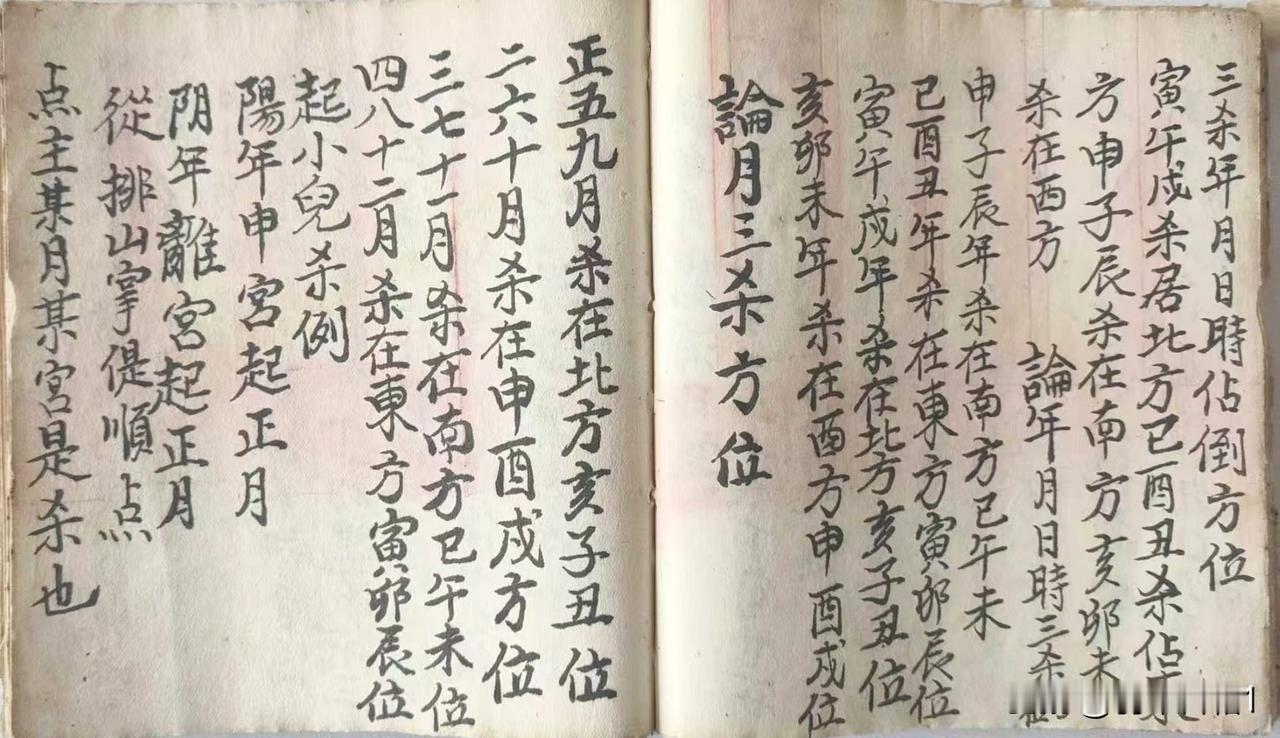 三杀年月日時佔倒方位
寅午戌杀居北方巳酉丑杀佔
方申子辰杀在南方亥卯未
杀在西方　論年月日時三杀
申子辰年杀在南方巳午未
巳酉丑年杀在東方寅卯辰位
寅午戌年杀在北方亥子丑位
亥卯未年杀在酉方申酉戌位
論月三杀方位
正五九月杀在北方亥子丑位
二六十月杀在申酉戌方位
三七十一月杀在南方巳午未位
四八十二月杀在東方寅卯辰位
起小兒杀例
陽年申宮起正月
阴年離宮起正月
從排山掌㑅順点
点主某月某宮是杀也